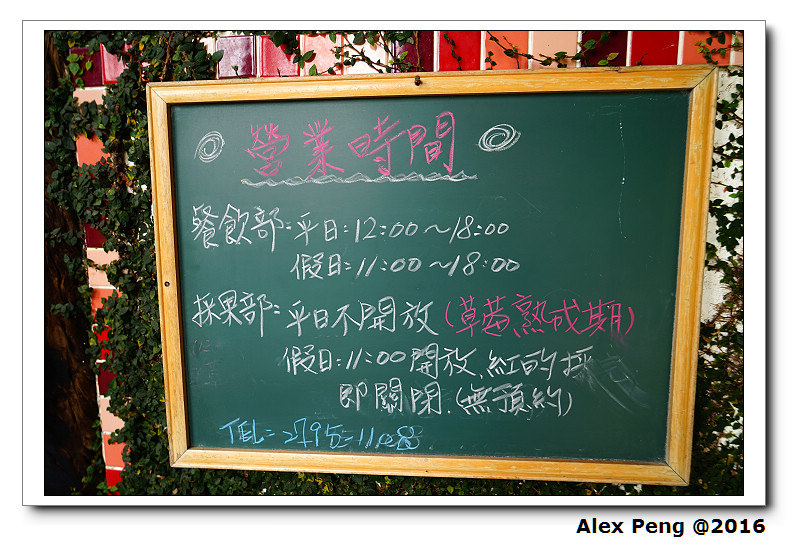 營業時間
餐飲部:平日:12:00~18:00
假日:11:00~18:00
採果部:平日不開放(草莓熟成期)
假日:11:00開放.紅的採
即關閉.(無預約)
TEL=2795-11
Alex Peng @2016